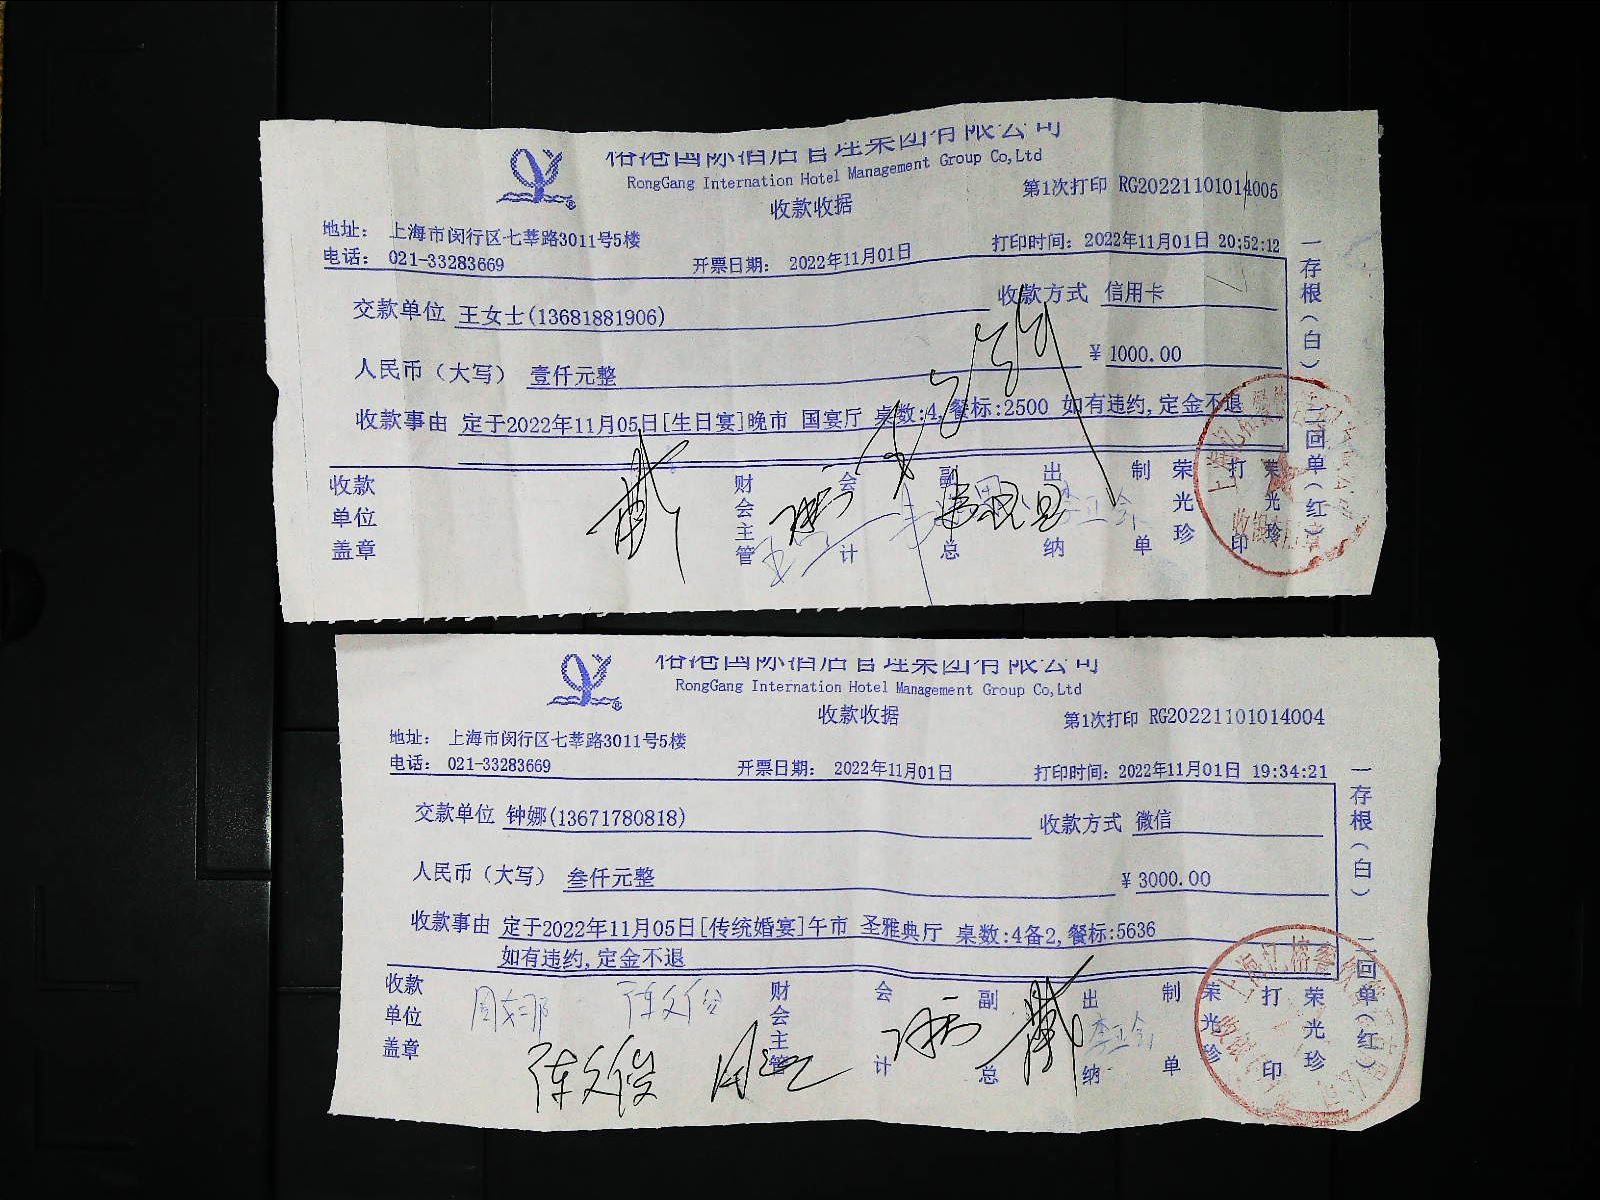 榕港国际酒店管理集团有限公司
RongGang Internation Hotel Management Group Co,Ltd
收款收据
第1次打印 RG20221101014005
地址: 上海市闵行区七莘路3011号5楼
电话: 021-33283669
开票日期: 2022年11月01日
打印时间: 2022年11月01日 20:52:12
交款单位 王女士(13681881906)
收款方式 信用卡
人民币(大写) 壹仟元整
¥ 1000.00
收款事由 定于2022年11月05日[生日宴]晚市 国宴厅 桌数:4,餐标:2500 如有违约,定金不退
收款单位盖章
财会主管
会计
副总
出纳
李正会
制单
荣光珍
打印
荣光珍
一存根(白)
二回单(红)
榕港国际酒店管理集团有限公司
RongGang Internation Hotel Management Group Co,Ltd
收款收据
第1次打印 RG20221101014004
地址: 上海市闵行区七莘路3011号5楼
电话: 021-33283669
开票日期: 2022年11月01日
打印时间: 2022年11月01日 19:34:21
交款单位 钟娜(13671780818)
收款方式 微信
人民币(大写) 叁仟元整
¥ 3000.00
收款事由 定于2022年11月05日[传统婚宴]午市 圣雅典厅 桌数:4备2,餐标:5636
如有违约,定金不退
收款单位盖章
陈文俊
财会主管
会计
副总
出纳
李正会
制单
荣光珍
打印
荣光珍
一存根(白)
二回单(红)